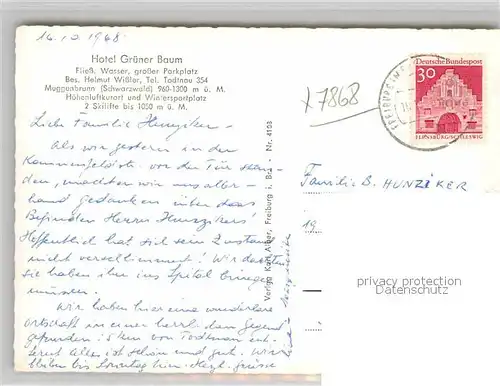 16.10.1968
Hotel Grüner Baum
Fließ. Wasser, großer Parkplatz
Bes. Helmut Wißler, Tel. Todtnau 354
Muggenbrunn (Schwarzwald) 960-1300 m ü. M.
Höhenluftkurort und Wintersportplatz
2 Skilifte bis 1050 m ü. M.
Deutsche Bundespost
30
FLENSBURG/SCHLESWIG
+7868
Liebe Familie Hunziker.
Als wir gestern in der
von der Tür stan-
den, machten wir uns aller-
hand gedanken über das
Befinden Herrn Hunzikers'
Hoffentlich hat sich sein Zustand
nicht verschlimmert! Wir dachten
sie haben ihn ins Spital bringen
müssen.
Wir haben hier eine wunderbare
ortschaft in einer herrlichen Gegend
gefunden. 5 km von Todtnau ent-
fernt. Alles ist schön und gut. Wir
bleiben bis Sonntag Grüsse
Verlag Karl Alber, Freiburg i. Br. - Nr. 4103
Familie B. HUNZIKER
19
privacy protection
Datenschutz